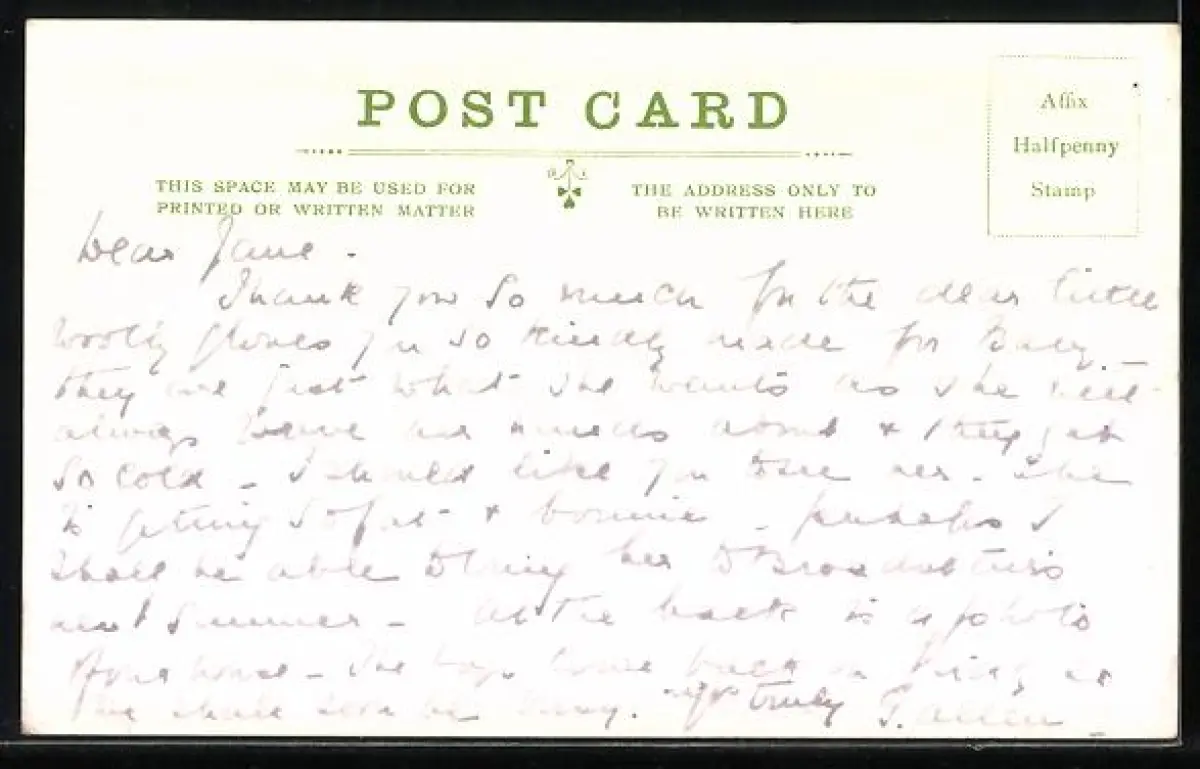 POST CARD
Affix
Halfpenny
Stamp
THIS SPACE MAY BE USED FOR
PRINTED OR WRITTEN MATTER
THE ADDRESS ONLY TO
BE WRITTEN HERE
Dear Jane.
Thank you so much for the dear little
wooly gloves you so kindly made for Baby _
they are just what she wants as she will
always have her hands about & they get
so cold _ I should like you to see her _ she
is getting so fat & bonnie _ perhaps I
shall be able to bring her to Broadstairs
next summer _ at the back is a photo
of our house _ The boys come back on
we shall soon be busy. truly